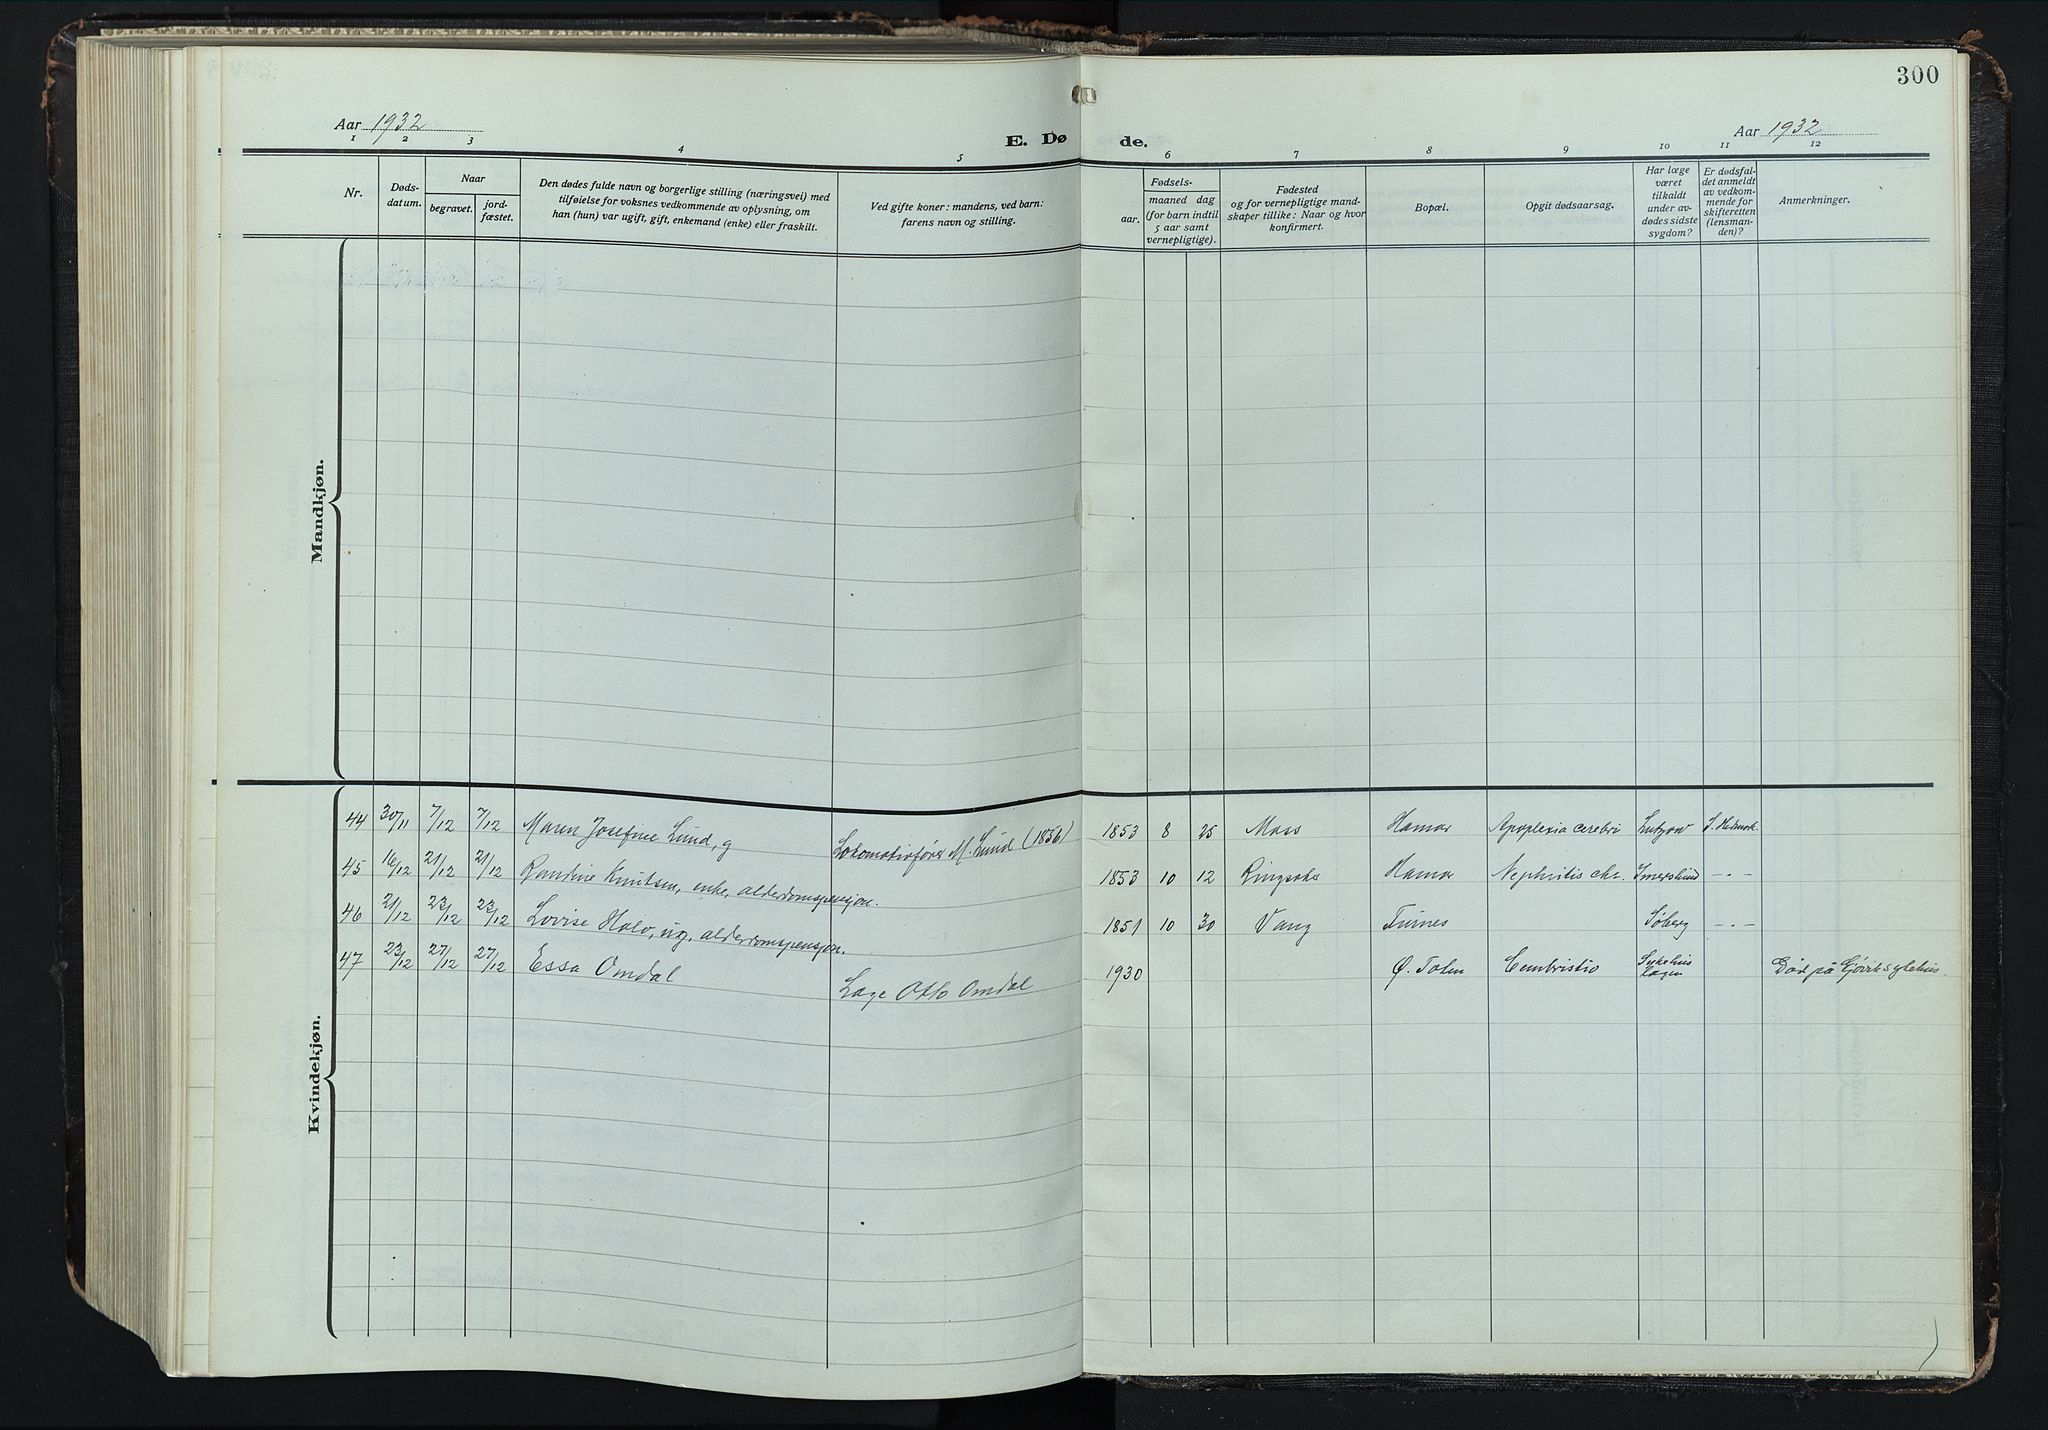 300
Aar 1932
E. Dø de.
Aar 1932
1 2 3 4 5 6 7 8 9 10 11 12
Nr.
Døds-
datum.
Naar
begravet.
jord-
fæstet.
Den dødes fulde navn og borgerlige stilling (næringsvei) med
tilføielse for voksnes vedkommende av oplysning, om
han (hun) var ugift, gift, enkemand (enke) eller fraskilt.
Ved gifte koner: mandens, ved barn:
farens navn og stilling.
Fødsels-
aar.
maaned dag
(for barn indtil
5 aar samt
vernepligtige).
Fødested
og for vernepligtige mand-
skaper tillike: Naar og hvor
konfirmert.
Bopæl.
Opgit dødsaarsag.
Har læge
været
tilkaldt
under av-
dødes sidste
sygdom?
Er dødsfal-
det anmeldt
av vedkom-
mende for
skifteretten
(lensman-
den)?
Anmerkninger.
Mandkjøn.
Kvindekjøn.
44 30/11 7/12 7/12 Maren Josefine Lund, g Lokomotivfører M. Lund (1856) 1853 8 25 Moss Hamar Apoplexia cerebri Lutzow S. Hedmark.
45 16/12 21/12 21/12 Randine Knutsen, enke, alderdomspensjon. 1853 10 12 Ringsaker Hamar Nephritis chr. Imerslund -"-
46 21/12 23/12 23/12 Lovise Holo, ug. alderdomspensjon. 1851 10 30 Vang Furnes Søberg -"-
47 23/12 27/12 27/12 Essa Omdal Læge Otto Omdal 1930 Ø. Toten Combustio Sykehus
lægen Död på Gjövik sykehus.